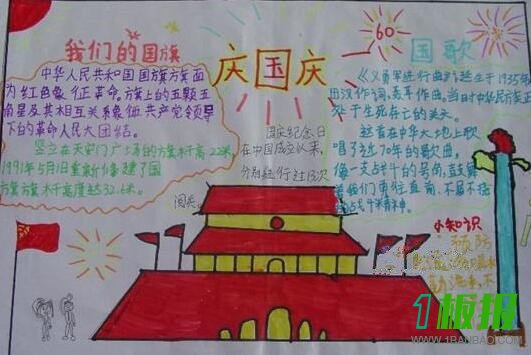 我们的国旗
中华人民共和国国旗旗面
为红色象征革命。旗上的五颗五
角星及其相互关系象征共产党领导
下的革命人民大团结。
竖立在天安门广场的旗杆高22米,
1991年5月1日重新修建了国
旗旗杆高度达32.6米。
庆国庆
国庆纪念日
在中国成立以来,
分别进行过13次
阅兵。
60
国歌
《义勇军进行曲》诞生于1935年
田汉作词、聂耳作曲。当时中华民族正
处于生死存亡的关头。
这首在中华大地上歌
唱了近70年的歌曲,
像一支战斗的号角,鼓舞
着我们勇往直前,不屈不挠
战斗精神。
小知识
预防
勤洗手,不
1板报
WWW.1BANBAO.COM